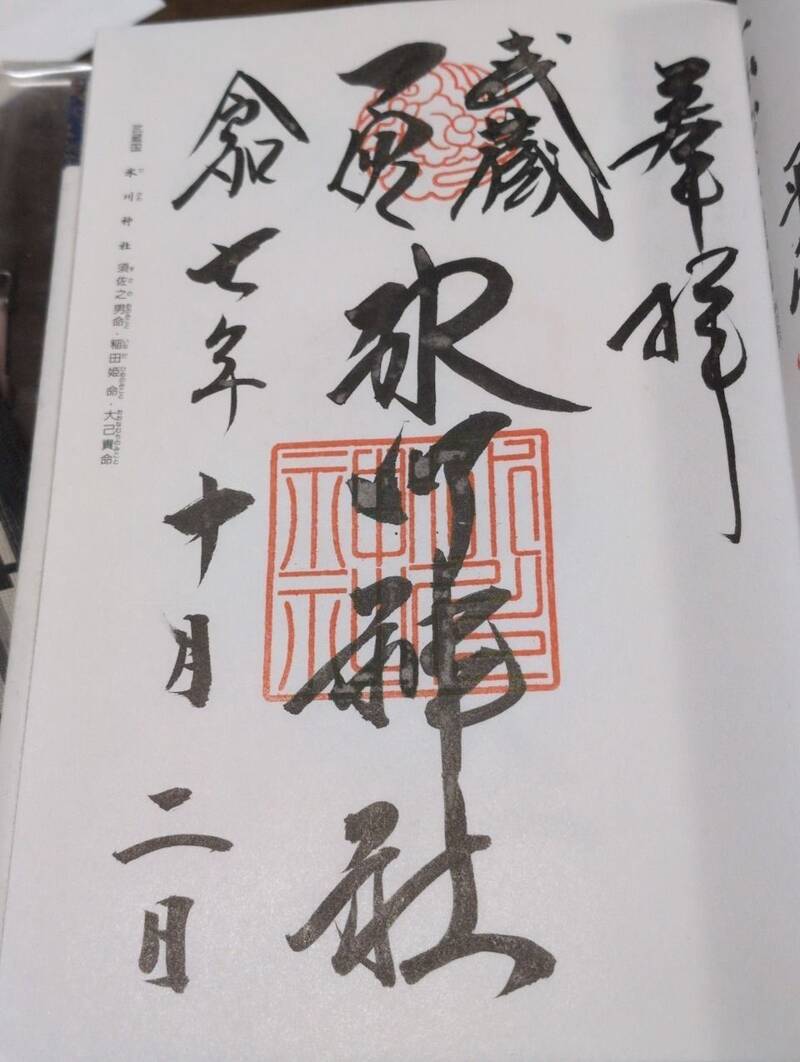 奉拝
武蔵
一宮
氷川神社
令和七年十月二日
氷川神社 須佐之男命・稲田姫命・大己貴命